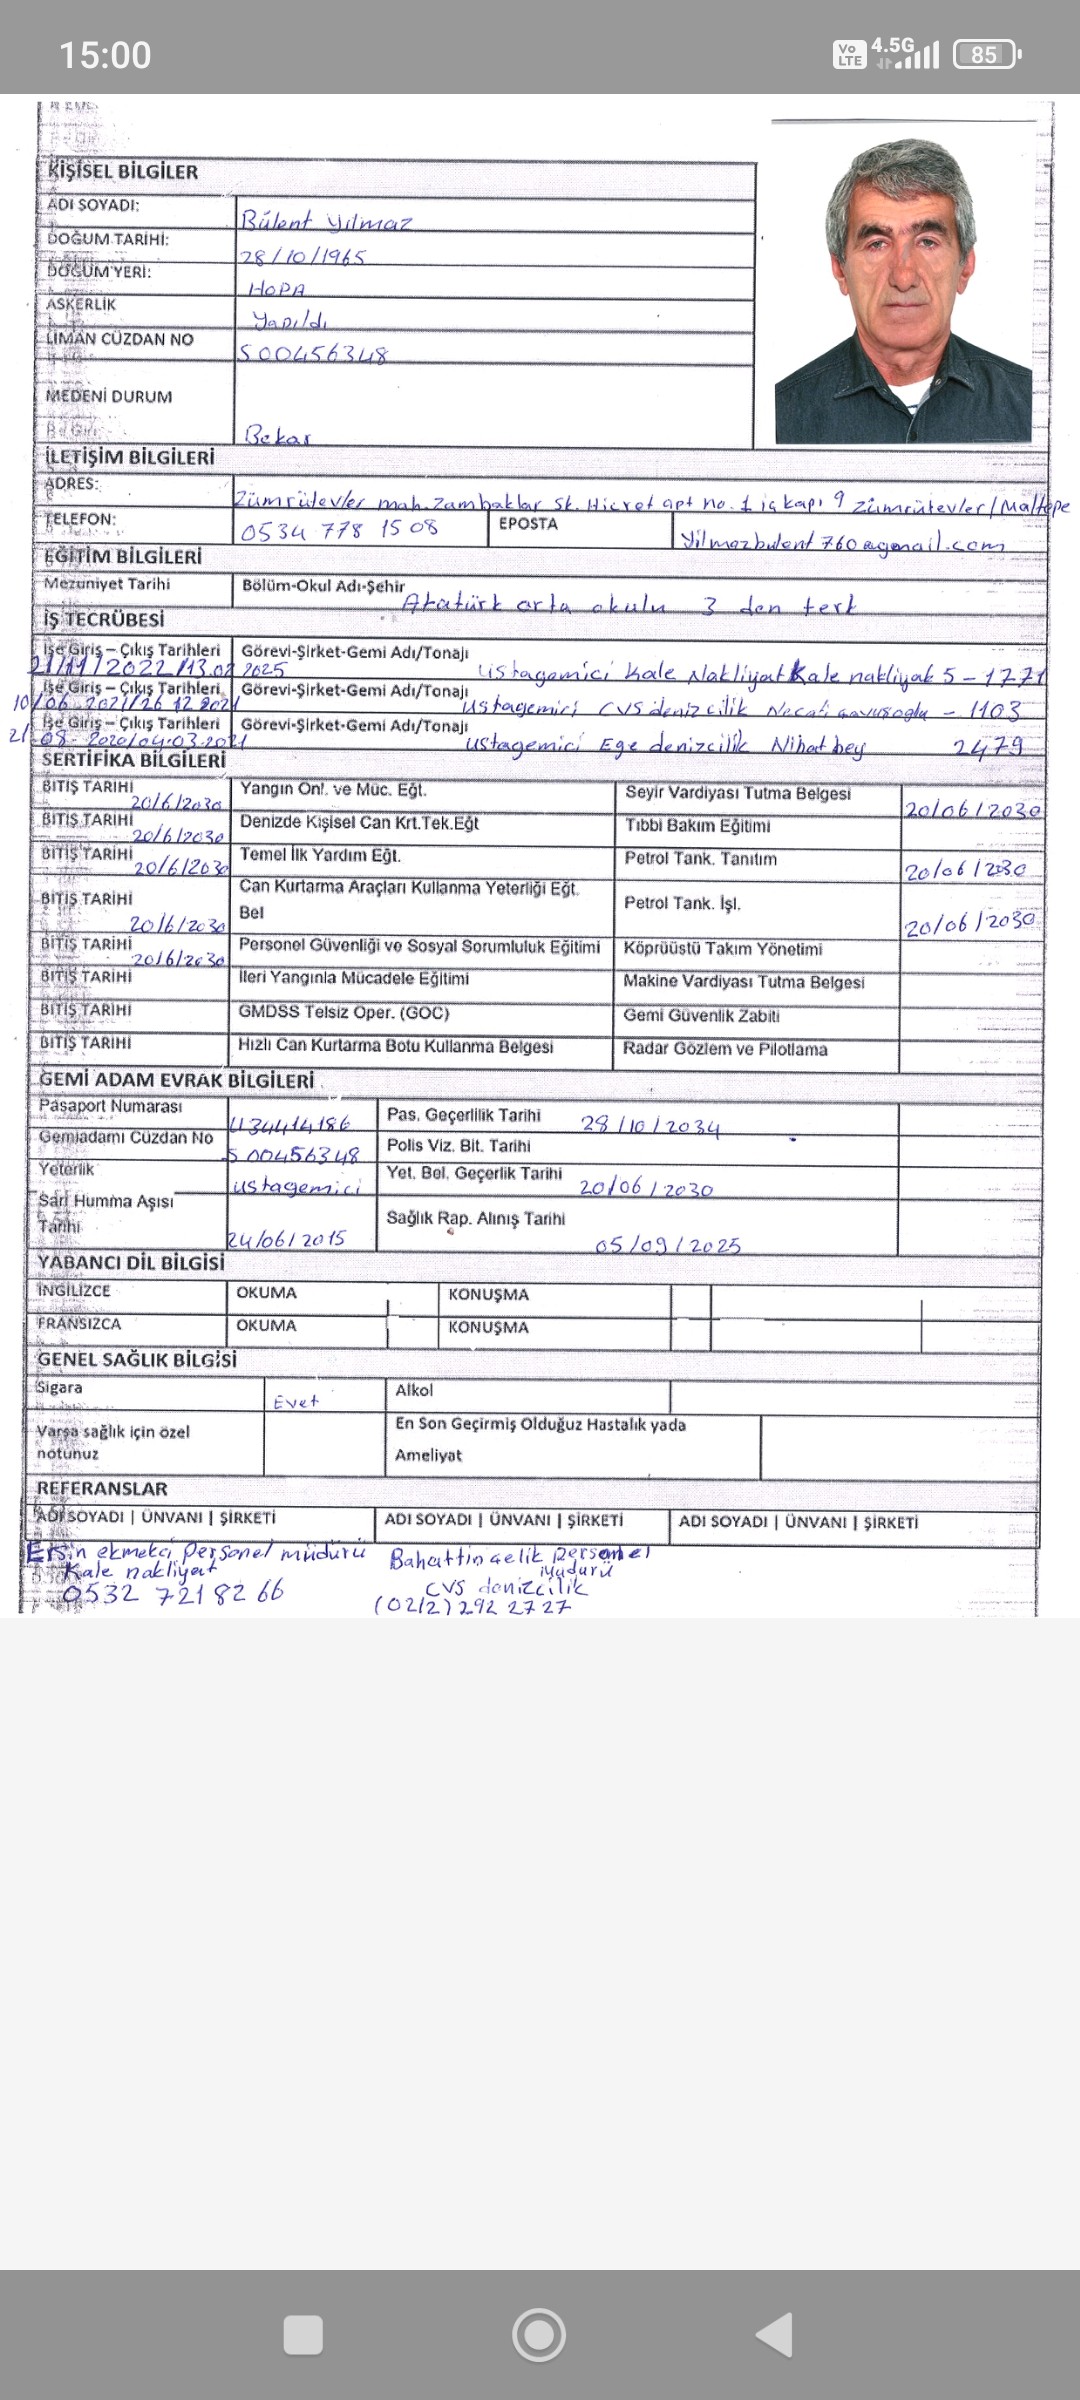 15:00
Vo LTE 4.5G 85
KİŞİSEL BİLGİLER
ADI SOYADI: Bülent Yılmaz
DOĞUM TARİHİ: 28/10/1965
DOĞUM YERİ: HOPA
ASKERLİK Yapıldı
LİMAN CÜZDAN NO 500456348
MEDENİ DURUM Bekar
İLETİŞİM BİLGİLERİ
ADRES: Zümrütevler mah. Zambaklar Sk. Hicret apt no. 1 iç kapı 9 Zümrütevler/Maltepe
TELEFON: 0534 778 15 08 EPOSTA yilmazbulent760@gmail.com
EĞİTİM BİLGİLERİ
Mezuniyet Tarihi Bölüm-Okul Adı-Şehir Atatürk orta okulu 3 den terk
İŞ TECRÜBESİ
İşe Giriş – Çıkış Tarihleri Görevi-Şirket-Gemi Adı/Tonajı
21/11/2022/13.02.2025 ustagemici Kale Nakliyat Kale nakliyak 5 - 1771
İşe Giriş – Çıkış Tarihleri Görevi-Şirket-Gemi Adı/Tonajı
10/06.2021/26.12.2021 ustagemici CVS denizcilik Necati çavuşoglu - 1103
İşe Giriş – Çıkış Tarihleri Görevi-Şirket-Gemi Adı/Tonajı
21.08.2020/04.03.2021 ustagemici Ege denizcilik Nihat bey 2479
SERTİFİKA BİLGİLERİ
BİTİŞ TARİHİ 20/6/2030 Yangın Önl. ve Müc. Eğt. Seyir Vardiyası Tutma Belgesi 20/06/2030
BİTİŞ TARİHİ 20/6/2030 Denizde Kişisel Can Krt.Tek.Eğt Tıbbi Bakım Eğitimi
BİTİŞ TARİHİ 20/6/2030 Temel İlk Yardım Eğt. Petrol Tank. Tanıtım 20/06/2030
BİTİŞ TARİHİ 20/6/2030 Can Kurtarma Araçları Kullanma Yeterliği Eğt. Bel Petrol Tank. İşl. 20/06/2030
BİTİŞ TARİHİ 20/6/2030 Personel Güvenliği ve Sosyal Sorumluluk Eğitimi Köprüüstü Takım Yönetimi
BİTİŞ TARİHİ İleri Yangınla Mücadele Eğitimi Makine Vardiyası Tutma Belgesi
BİTİŞ TARİHİ GMDSS Telsiz Oper. (GOC) Gemi Güvenlik Zabiti
BİTİŞ TARİHİ Hızlı Can Kurtarma Botu Kullanma Belgesi Radar Gözlem ve Pilotlama
GEMİ ADAM EVRAK BİLGİLERİ
Pasaport Numarası U34414186 Pas. Geçerlilik Tarihi 28/10/2034
Gemiadamı Cüzdan No 500456348 Polis Viz. Bit. Tarihi
Yeterlik ustagemici Yet. Bel. Geçerlik Tarihi 20/06/2030
Sarı Humma Aşısı Tarihi 24/06/2015 Sağlık Rap. Alınış Tarihi 05/09/2025
YABANCI DİL BİLGİSİ
İNGİLİZCE OKUMA KONUŞMA
FRANSIZCA OKUMA KONUŞMA
GENEL SAĞLIK BİLGİSİ
Sigara Evet Alkol
Varsa sağlık için özel notunuz En Son Geçirmiş Olduğuz Hastalık yada Ameliyat
REFERANSLAR
ADI SOYADI | ÜNVANI | ŞİRKETİ ADI SOYADI | ÜNVANI | ŞİRKETİ ADI SOYADI | ÜNVANI | ŞİRKETİ
Ersin ekmekçi Personel müdürü Bahattin çelik Personel Müdürü
Kale nakliyat CVS denizcilik
0532 721 82 66 (0212) 292 27 27